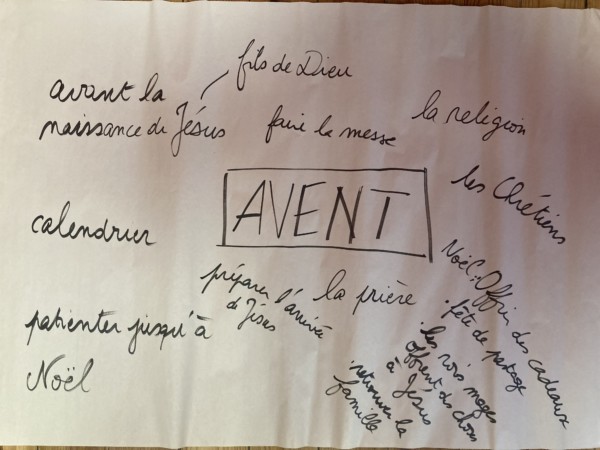 fils de Dieu
avant la
naissance de Jésus
faire la messe
la religion
les Chrétiens
AVENT
calendrier
préparer l'arrivée
de Jésus
la prière
patienter jusqu'à
Noël
Noël: Offrir des cadeaux
• fête de partage
• les rois mages
offrent des choses
à Jésus
• retrouver la
famille